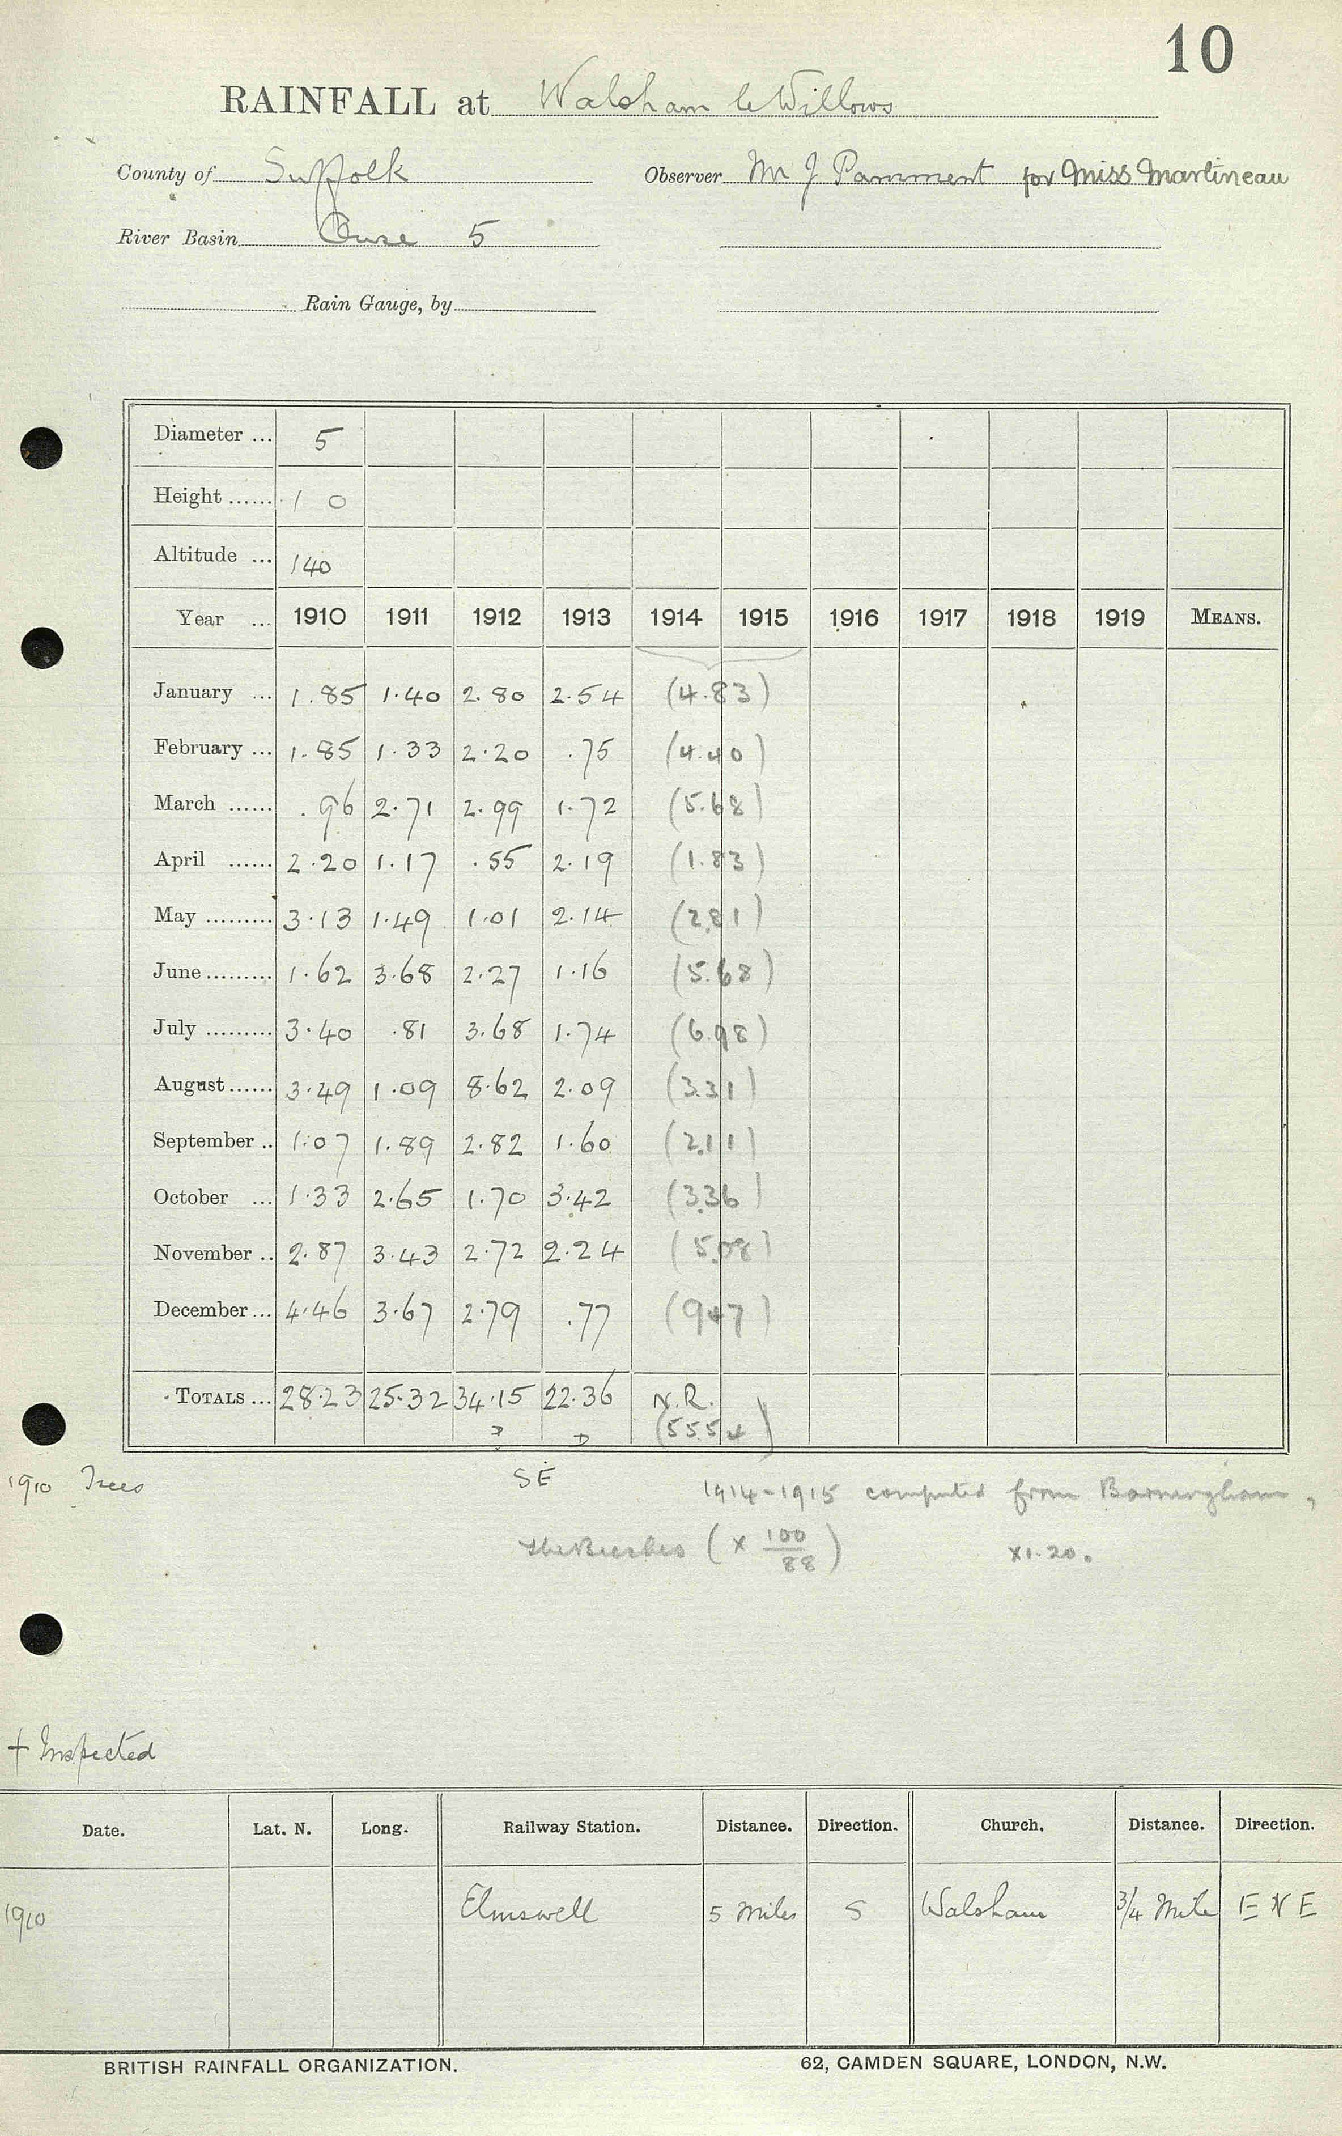 10
RAINFALL at Walsham le Willows
County of Suffolk Observer Mr J Pamment for Miss Martineau
River Basin Ouse 5
Rain Gauge, by
Diameter ... 5
Height ...... 1 0
Altitude ... 140
Year ... 1910 1911 1912 1913 1914 1915 1916 1917 1918 1919 MEANS.
January ... 1.85 1.40 2.80 2.54 (4.83)
February ... 1.85 1.33 2.20 .75 (4.40)
March ...... .96 2.71 2.99 1.72 (5.68)
April ...... 2.20 1.17 .55 2.19 (1.83)
May ......... 3.13 1.49 1.01 2.14 (2.81)
June ......... 1.62 3.68 2.27 1.16 (5.68)
July ......... 3.40 .81 3.68 1.74 (6.98)
August ...... 3.49 1.09 8.62 2.09 (3.31)
September .. 1.07 1.89 2.82 1.60 (2.11)
October ... 1.33 2.65 1.70 3.42 (3.36)
November .. 2.87 3.43 2.72 2.24 (5.08)
December ... 4.46 3.67 2.79 .77 (9.47)
TOTALS ... 28.23 25.32 34.15 22.36 N.R.
(55.54)
1910 Trees SE 1914-1915 computed from Barningham,
The Beeches (x 100/88) x1.20.
+ Inspected
Date. Lat. N. Long. Railway Station. Distance. Direction. Church. Distance. Direction.
1910 Elmswell 5 miles S Walsham 3/4 Mile E N E
BRITISH RAINFALL ORGANIZATION. 62, CAMDEN SQUARE, LONDON, N.W.